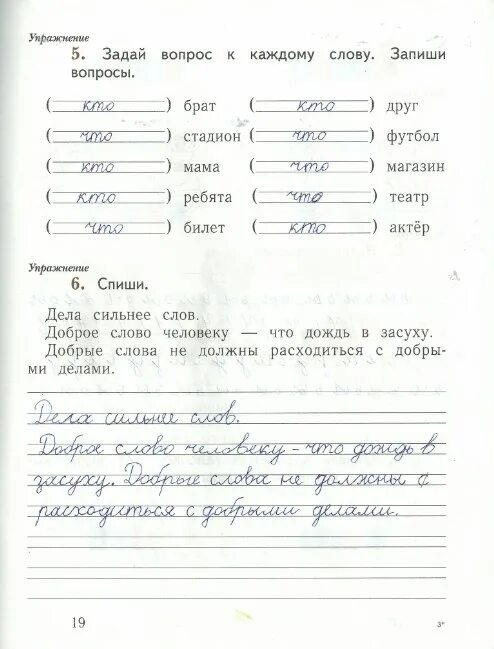 Упражнение
5. Задай вопрос к каждому слову. Запиши
вопросы.
( кто ) брат ( кто ) друг
( что ) стадион ( что ) футбол
( кто ) мама ( что ) магазин
( кто ) ребята ( что ) театр
( что ) билет ( кто ) актёр
Упражнение
6. Спиши.
Дела сильнее слов.
Доброе слово человеку — что дождь в засуху.
Добрые слова не должны расходиться с добры-
ми делами.
Дела сильнее слов.
Доброе слово человеку - что дождь в
засуху. Добрые слова не должны с
расходиться с добрыми делами.
19
3*